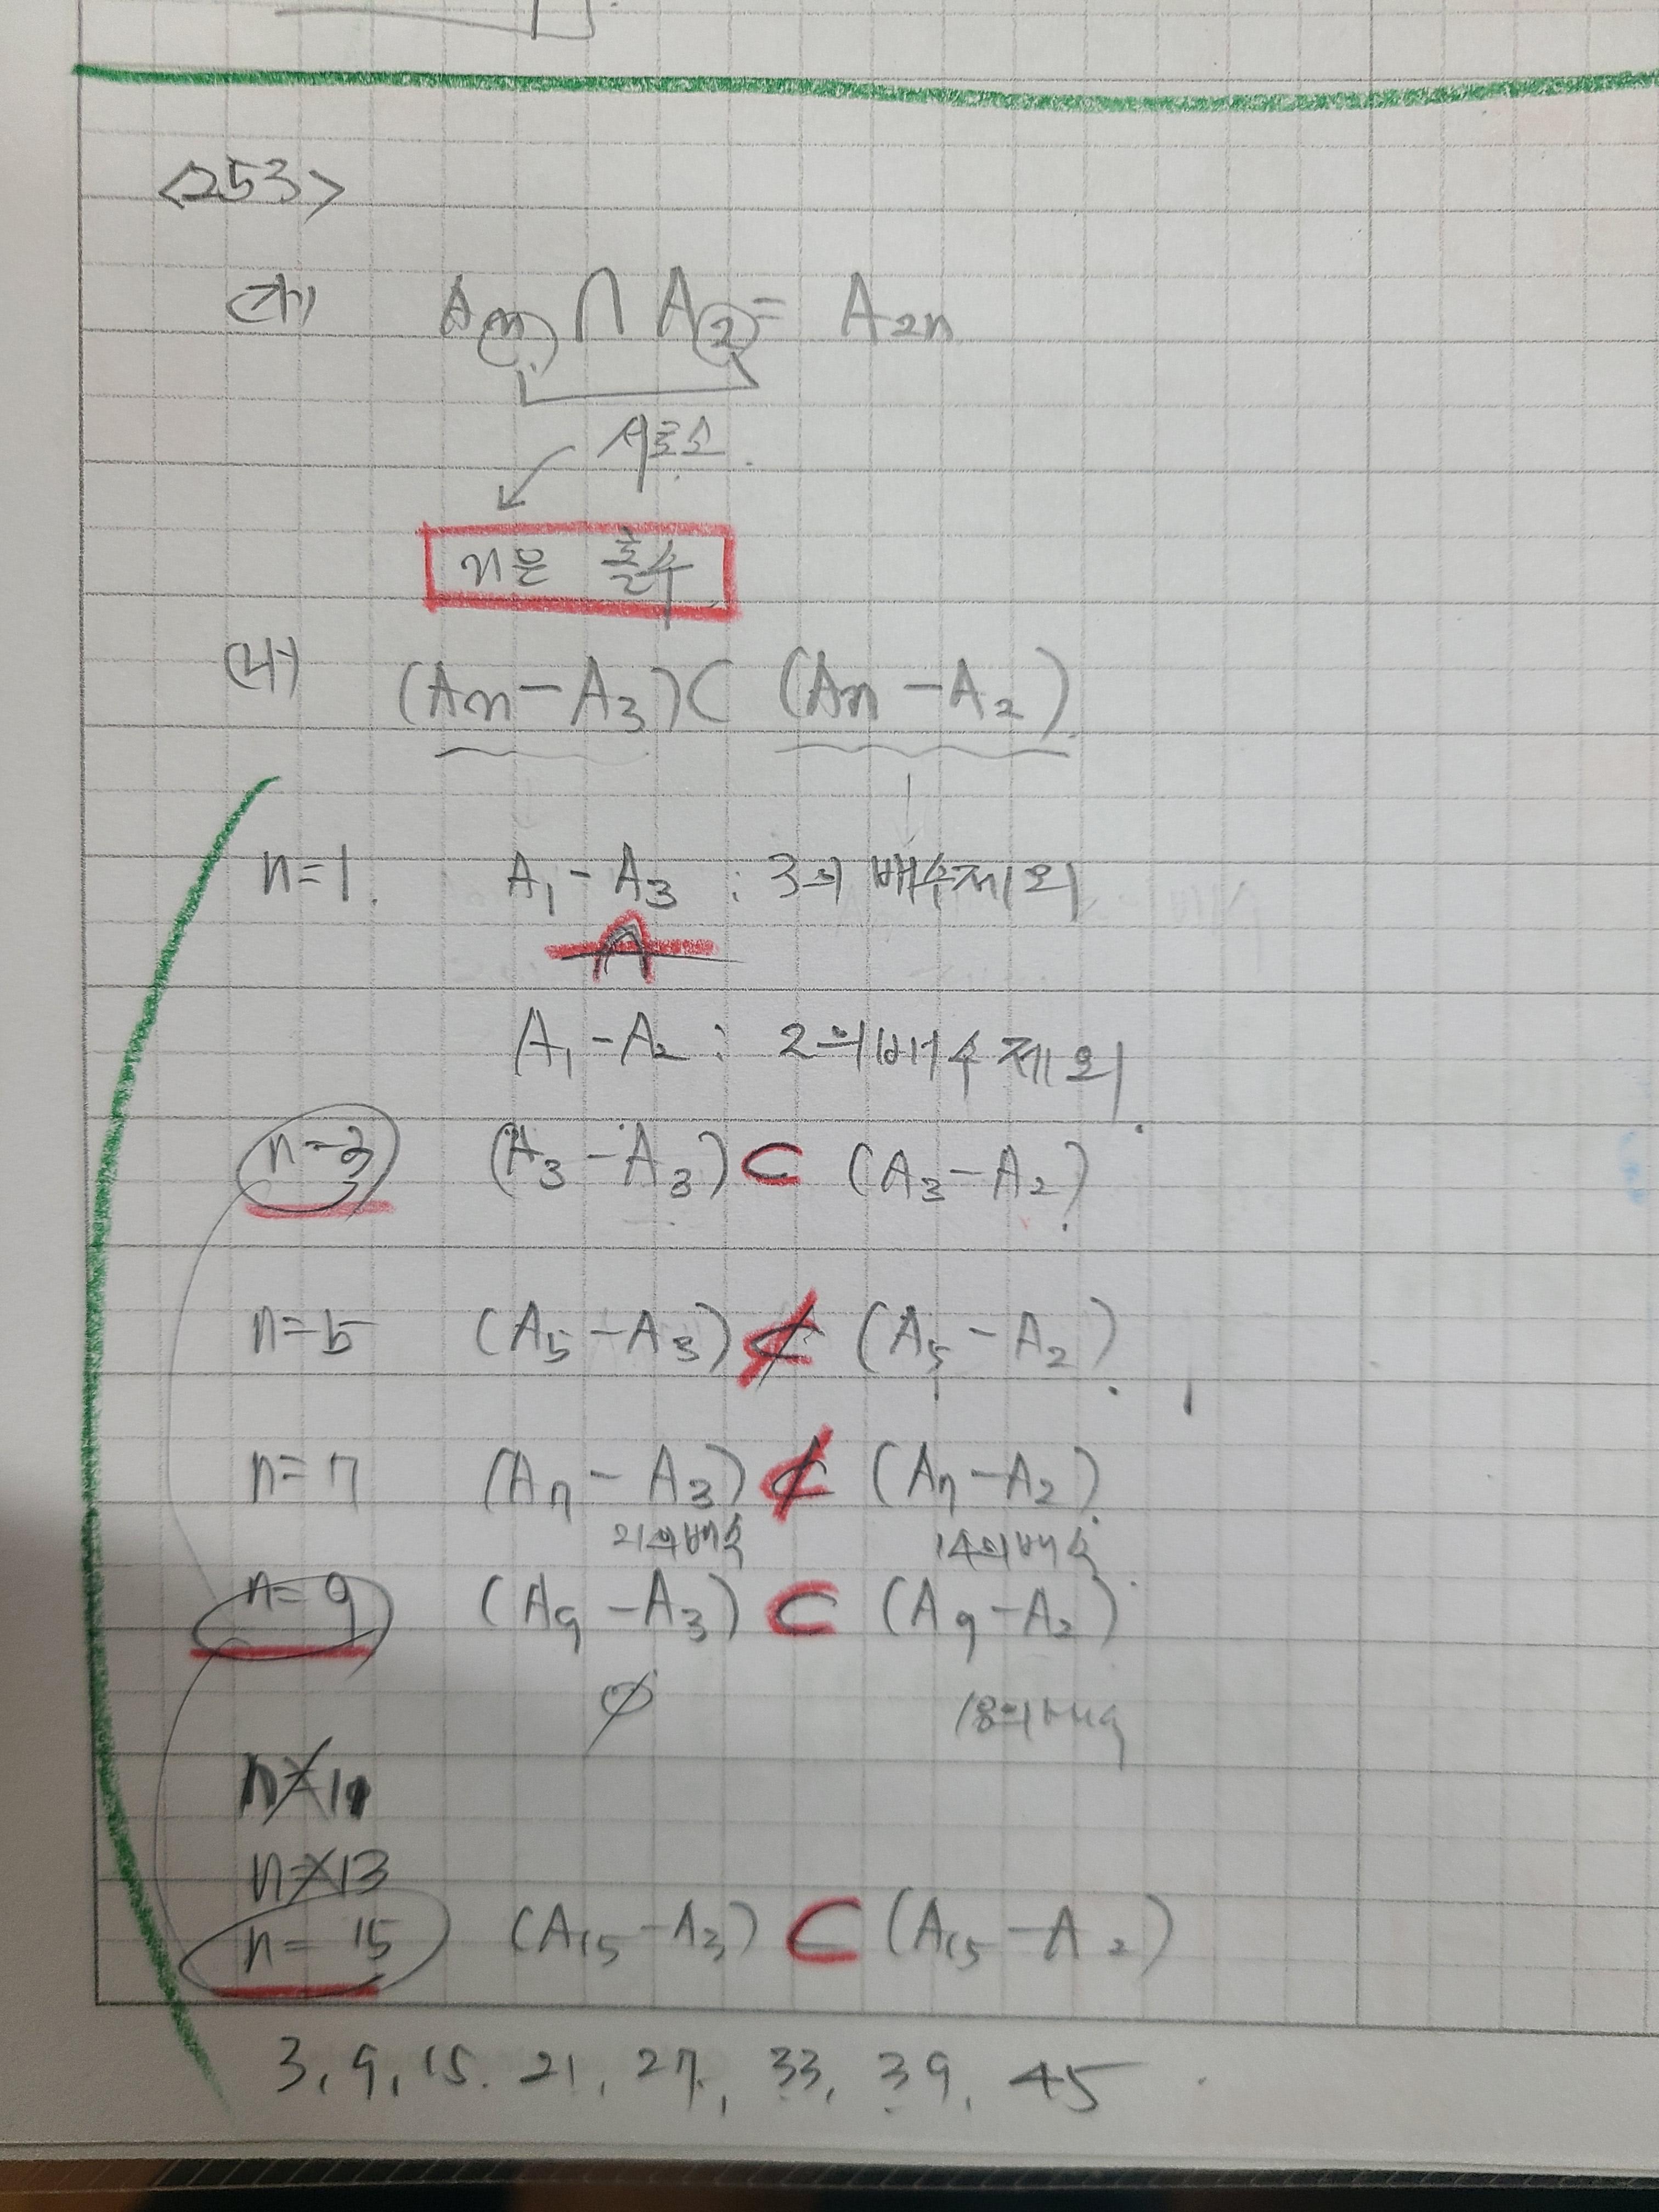 <253>
(가) An ∩ A2 = A2n
서로소.
n은 홀수
(나) (An - A3) ⊂ (An - A2)
n=1. A1 - A3 : 3의 배수제외
A
A1 - A2 : 2의배수 제외
n=3 (A3 - A3) ⊂ (A3 - A2)
n=5 (A5 - A3) ⊄ (A5 - A2)
n=7 (A7 - A3) ⊄ (A7 - A2)
21의배수 14의배수
n=9 (A9 - A3) ⊂ (A9 - A2)
∅ 18의배수
n=11
n=13
n=15 (A15 - A3) ⊂ (A15 - A2)
3, 9, 15. 21, 27, 33, 39, 45